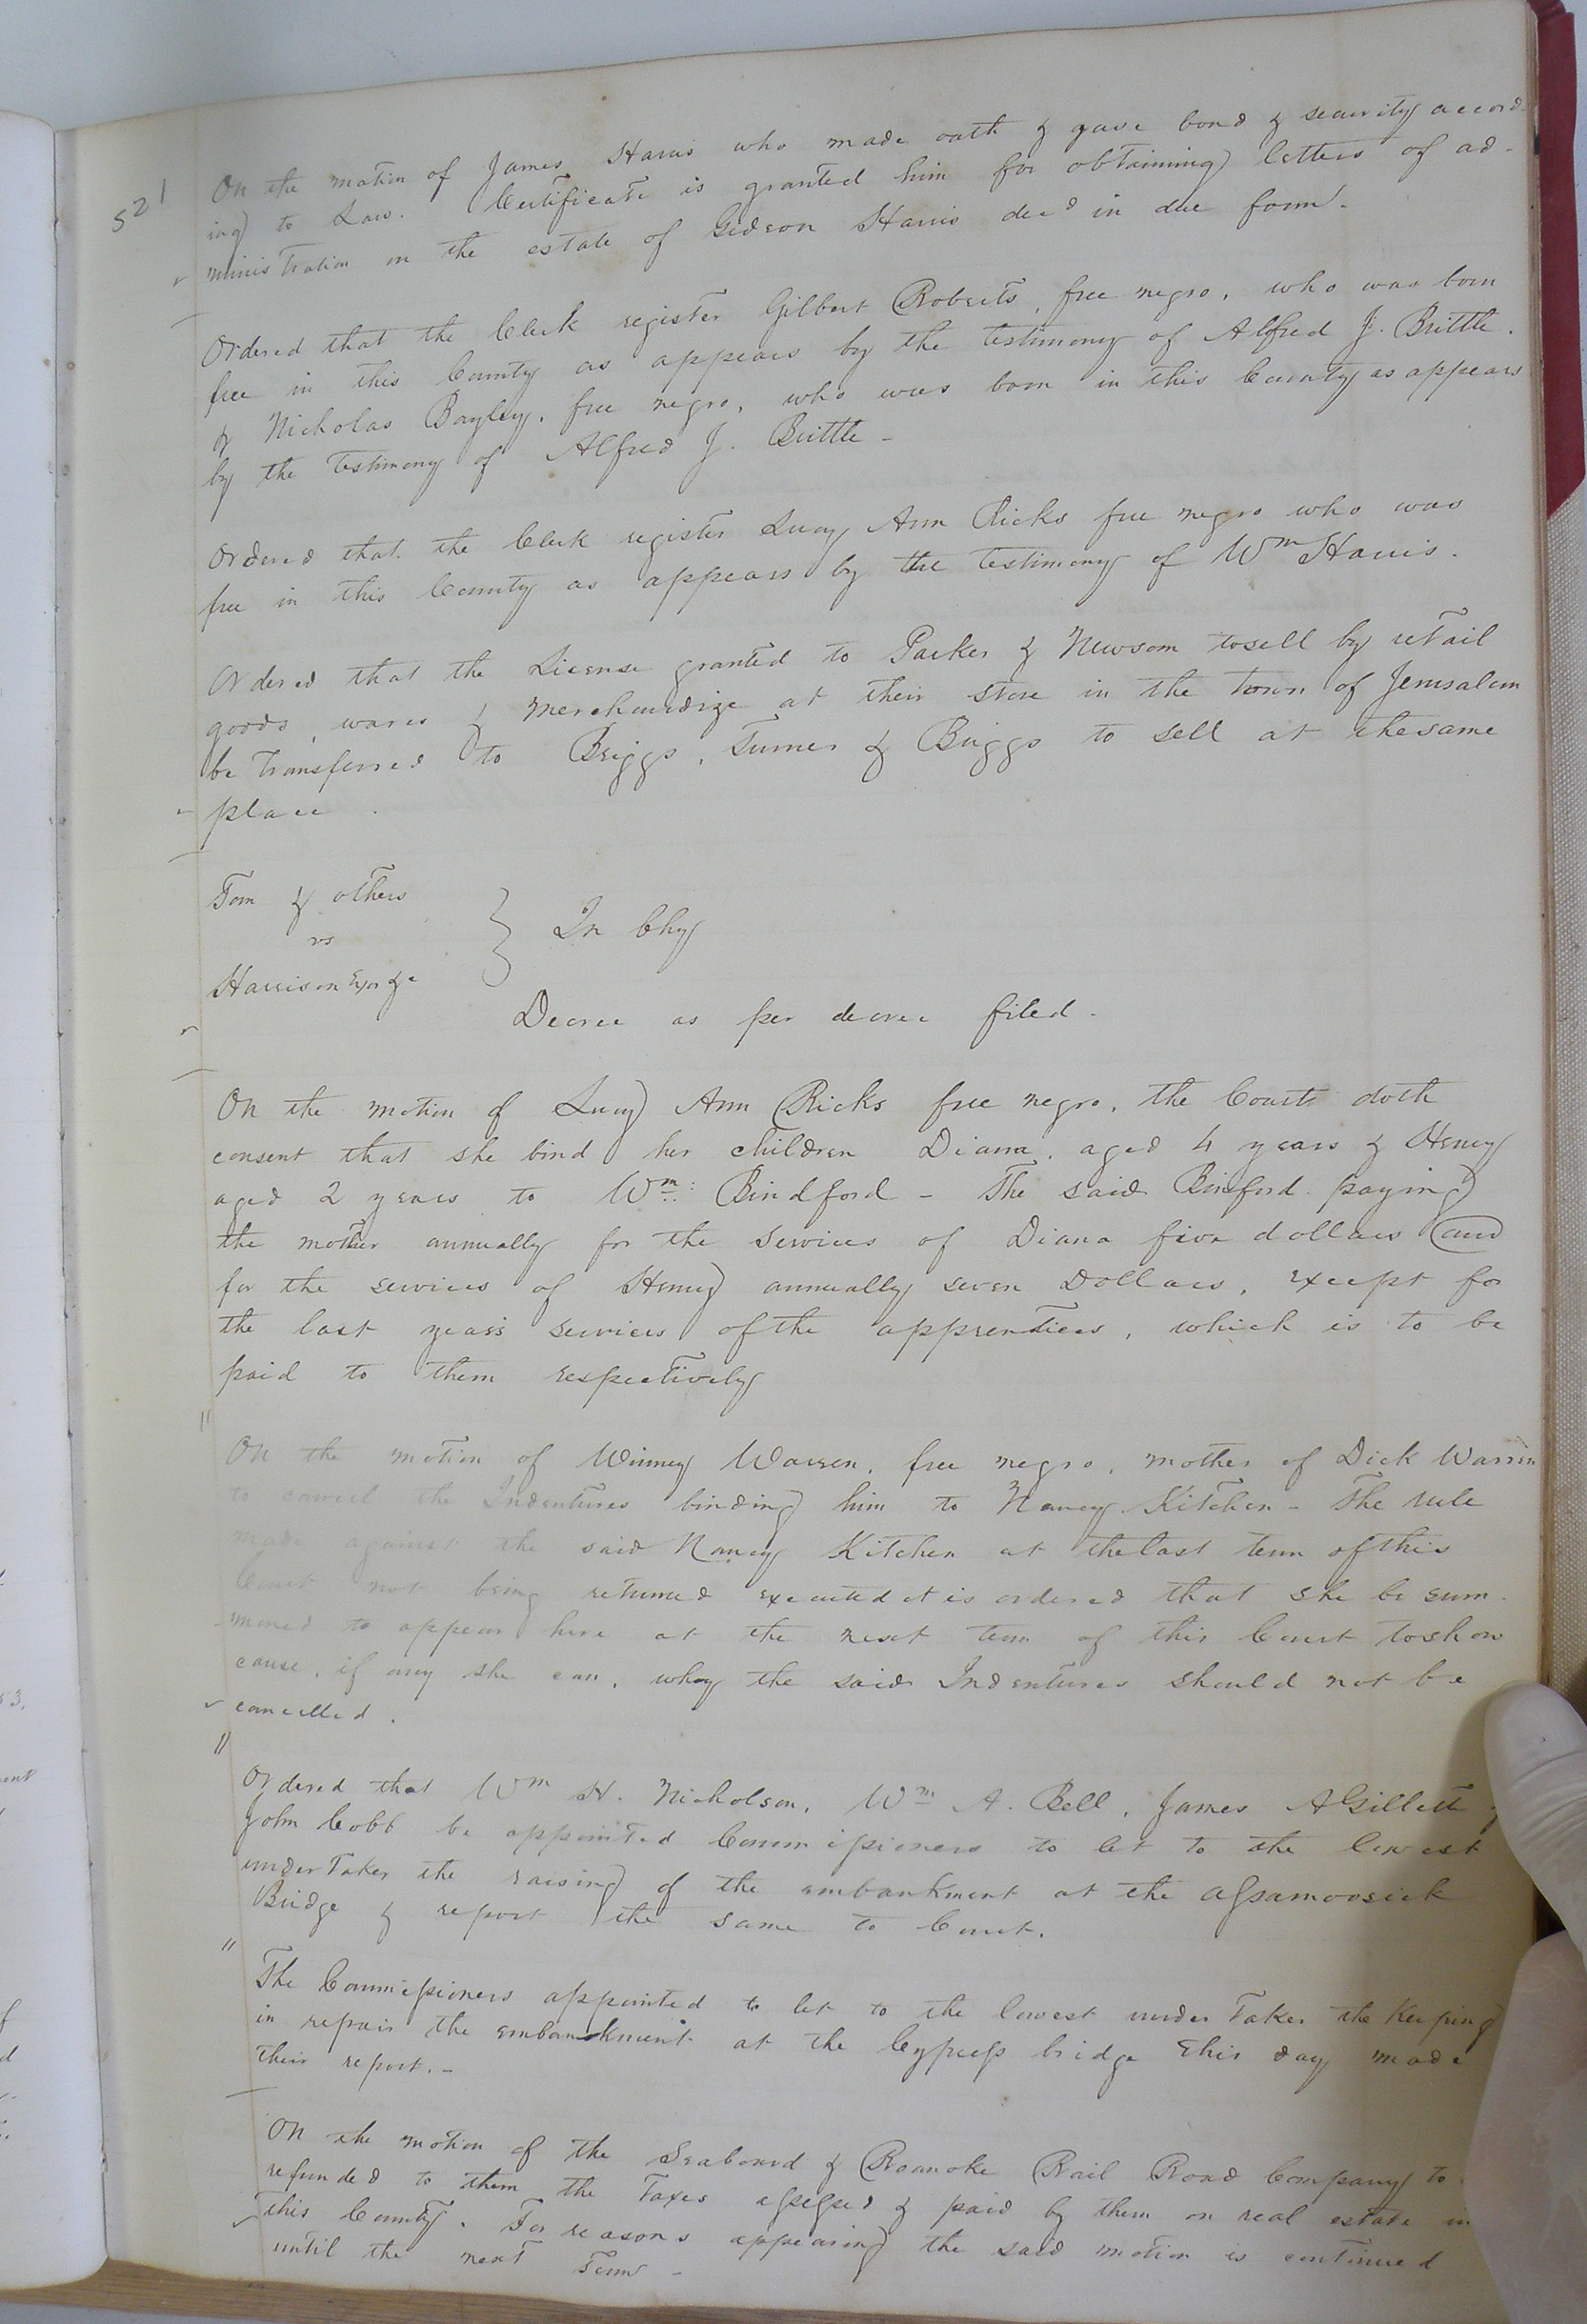 521
On the motion of James Harris who made oath & gave bond & security accord-
ing to Law. Certificate is granted him for obtaining letters of ad-
ministration on the estate of Gideon Harris decd in due form.-
Ordered that the Clerk register Gilbert Roberts, free negro, who was born
free in this County as appears by the testimony of Alfred J. Brittle.
& Nicholas Bayley, free negro, who was born in this County as appears
by the testimony of Alfred J. Brittle -
Ordered that the Clerk register Lucy Ann Ricks free negro who was
free in this County as appears by the testimony of Wm Harris.
Ordered that the License granted to Parker & Newsom to sell by retail
goods, wares & Merchandize at their store in the town of Jerusalem
be transferred to Briggs, Turner & Briggs to sell at the same
place.
Tom & others
vs
Harrison Exor &c
In Chy
Decree as per decree filed.
On the motion of Lucy Ann Ricks free negro, the Court doth
consent that she bind her children Diana, aged 4 years & Henry
aged 2 years to Wm: Bindford - The said Binford paying
the mother annually for the services of Diana five dollars and
for the services of Henry annually seven Dollars, except for
the last year's services of the apprentices, which is to be
paid to them respectively
On the motion of Winney Warren, free negro, mother of Dick Warren
to cancel the Indentures binding him to Nancy Kitchen - The rule
made against the said Nancy Kitchen at the last term of this
Court not being returned executed it is ordered that she be sum-
moned to appear here at the next term of this Court to show
cause, if any she can, why the said Indentures should not be
cancelled.
Ordered that Wm H. Nicholson, Wm A. Bell, James A Gillett &
John Cobb be appointed Commissioners to let to the lowest
undertaker the raising of the embankment at the Assamoosick
Bridge & report the same to Court.
The Commissioners appointed to let to the lowest undertaker the keeping
in repair the embankment at the Cypress bridge this day made
their report.-
On the motion of the Seaboard & Roanoke Rail Road Company to
refunded to them the Taxes assessed & paid by them on real estate in
this County. For reasons appearing the said motion is continued
until the next Term -